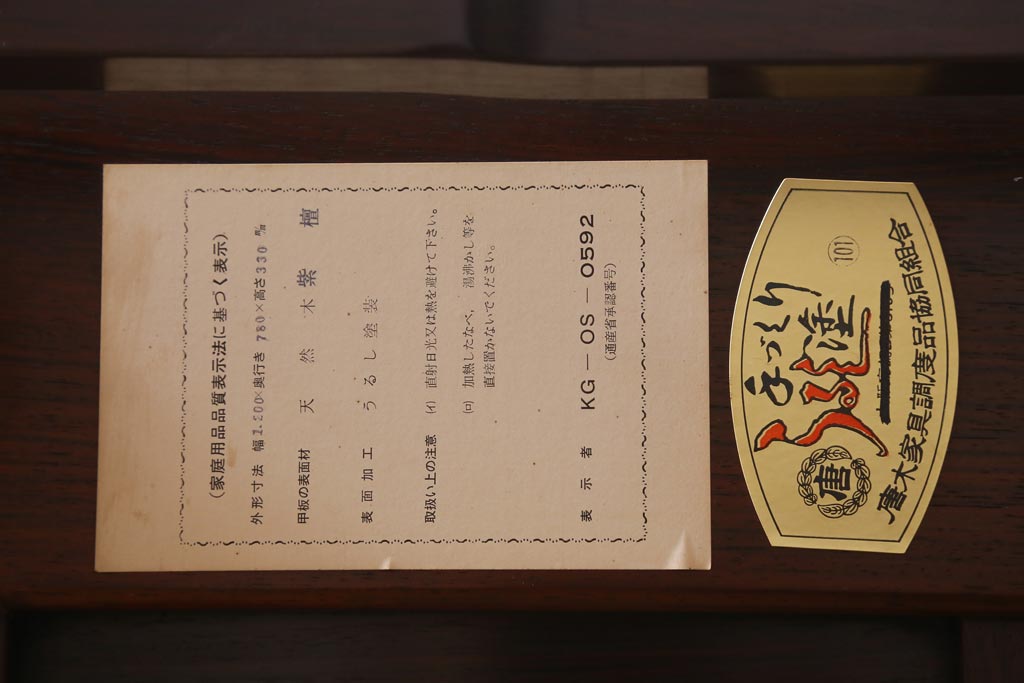 (家庭用品品質表示法に基づく表示)
外形寸法 幅1.200×奥行き780×高さ330㎜
甲板の表面材 天然木紫檀
表面加工 うるし塗装
取扱い上の注意 (イ) 直射日光又は熱を避けて下さい。
(ロ) 加熱したなべ, 湯沸かし等を
直接置かないでください。
表示者 KG—OS—0592
(通産省承認番号)
手づくり
うるし塗
101
唐
唐木家具調度品協同組合